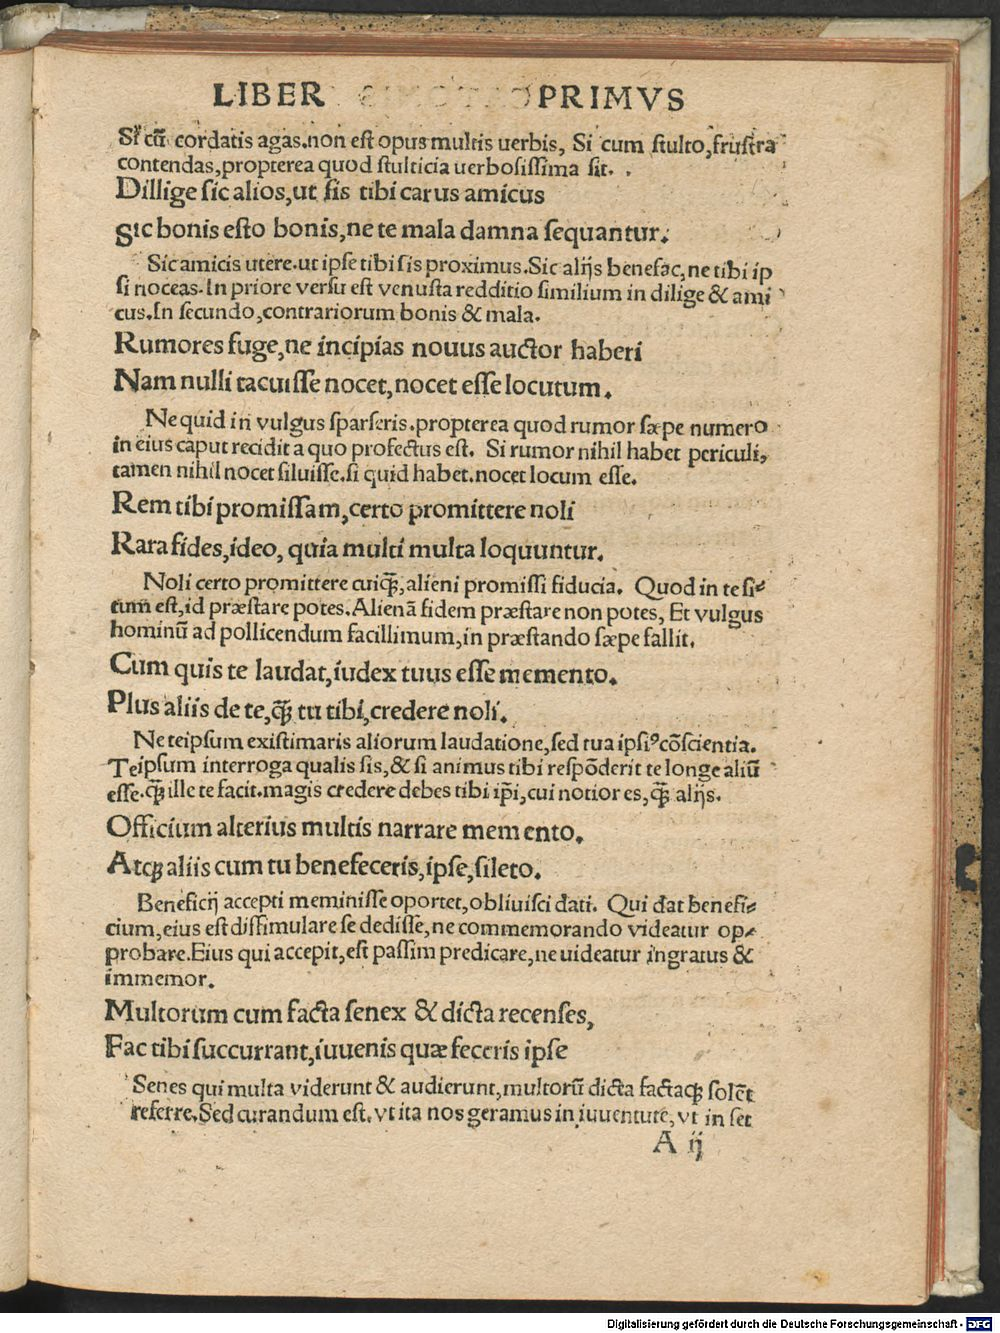 LIBER PRIMVS
Si cū cordatis agas.non est opus multis uerbis, Si cum stulto,frustra
contendas,propterea quod stulticia uerbosissima sit.
Dillige sic alios,ut sis tibi carus amicus
Sic bonis esto bonis,ne te mala damna sequantur.
Sic amicis utere.ut ipse tibi sis proximus.Sic alijs benefac,ne tibi ip
si noceas.In priore versu est venusta redditio similium in dilige & ami
cus.In secundo,contrariorum bonis & mala.
Rumores fuge,ne incipias nouus auctor haberi
Nam nulli tacuisse nocet,nocet esse locutum.
Ne quid in vulgus sparseris.propterea quod rumor sæpe numero
in eius caput recidit a quo profectus est. Si rumor nihil habet periculi,
tamen nihil nocet siluisse.si quid habet.nocet locum esse.
Rem tibi promissam,certo promittere noli
Rara fides,ideo, quia multi multa loquuntur.
Noli certo promittere cuiqꝫ,alieni promissi fiducia. Quod in te si⸗
tum est,id præstare potes.Alienā fidem præstare non potes, Et vulgus
hominū ad pollicendum facillimum,in præstando sæpe fallit.
Cum quis te laudat,iudex tuus esse memento.
Plus aliis de te,qꝫ̄ tu tibi,credere noli.
Ne teipsum existimaris aliorum laudatione,sed tua ipsiꝰ cōscientia.
Teipsum interroga qualis sis,& si animus tibi respōderit te longe aliū
esse.qꝫ̄ ille te facit.magis credere debes tibi ip̄i,cui notior es,qꝫ̄ alijs.
Officium alterius multis narrare memento.
Atqꝫ aliis cum tu benefeceris,ipse,sileto.
Beneficij accepti meminisse oportet,obliuisci dati. Qui dat benefi⸗
cium,eius est dissimulare se dedisse,ne commemorando videatur op⸗
probare.Eius qui accepit,est passim predicare,ne uideatur ingratus &
immemor.
Multorum cum facta senex & dicta recenses,
Fac tibi succurrant,iuuenis quæ feceris ipse
Senes qui multa viderunt & audierunt,multorū dicta factaqꝫ solēt
referre.Sed curandum est.vt ita nos geramus in iuuentute,vt in set
A ij
Digitalisierung gefördert durch die Deutsche Forschungsgemeinschaft - DFG